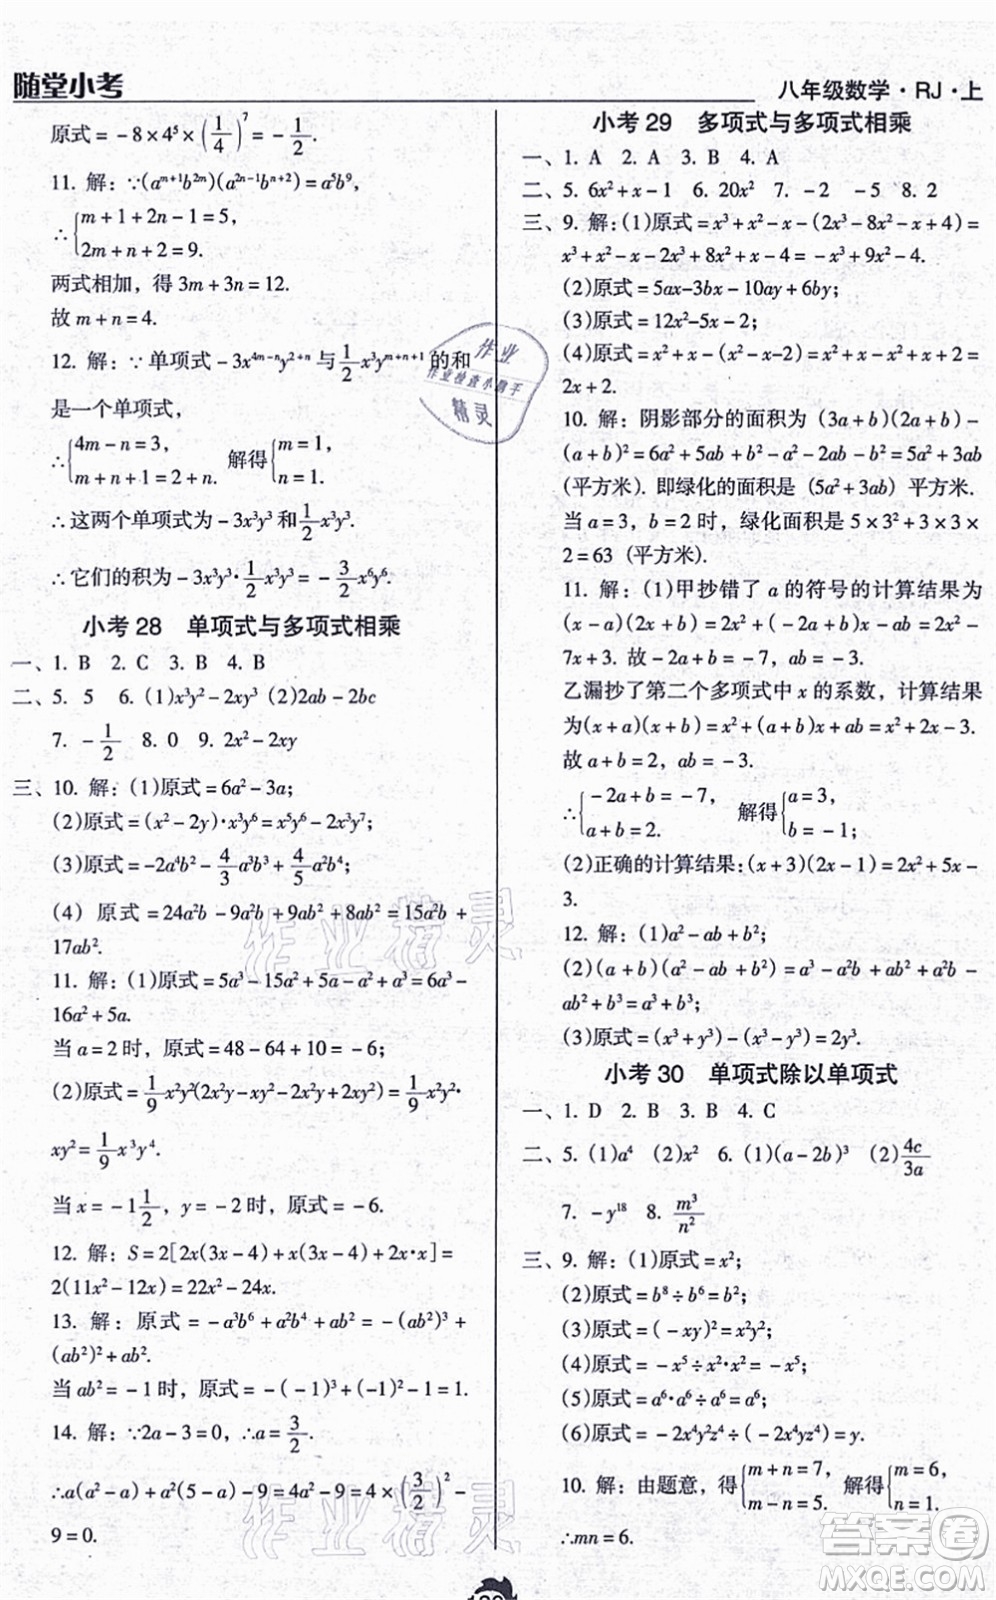 随堂小考
八年级数学·RJ·上
原式=-8×4⁵×(1/4)⁷=-1/2.
11. 解:∵(aᵐ⁺¹b²ᵐ)(a²ⁿ⁻¹bⁿ⁺²)=a⁵b⁹,
∴{m+1+2n-1=5,
2m+n+2=9.
两式相加，得 3m+3n=12.
故 m+n=4.
12. 解:∵单项式-3x⁴ᵐ⁻ⁿy²⁺ⁿ与1/2x³yᵐ⁺ⁿ⁺¹的和
是一个单项式，
∴{4m-n=3, 解得{m=1,
m+n+1=2+n. n=1.
∴这两个单项式为-3x³y³和1/2x³y³.
∴它们的积为-3x³y³·1/2x³y³=-3/2x⁶y⁶.
小考 28 单项式与多项式相乘
一、1. B 2. C 3. B 4. B
二、5. 5 6. (1)x³y²-2xy³ (2)2ab-2bc
7. -1/2 8. 0 9. 2x²-2xy
三、10. 解:(1)原式=6a²-3a;
(2)原式=(x²-2y)·x³y⁶=x⁵y⁶-2x³y⁷;
(3)原式=-2a⁴b²-4/3a³b³+4/5a²b⁴;
(4) 原式=24a²b-9a²b+9ab²+8ab²=15a²b+
17ab².
11. 解:(1)原式=5a³-15a²+5a-a²+a³=6a³-
16a²+5a.
当 a=2 时，原式=48-64+10=-6;
(2)原式=1/9x²y(2x²y-xy²-2x²y+2xy²)=1/9x²y·
xy²=1/9x³y⁴.
当 x=-1 1/2, y=-2 时，原式=-6.
12. 解: S=2[2x(3x-4)+x(3x-4)+2x·x]=
2(11x²-12x)=22x²-24x.
13. 解:原式=-a³b⁶+a²b⁴+ab²=-(ab²)³+
(ab²)²+ab².
当 ab²=-1 时，原式=-(-1)+1-1=1.
14. 解:∵2a-3=0, ∴a=3/2.
∴a(a²-a)+a²(5-a)-9=4a²-9=4×(3/2)²-
9=0.
小考 29 多项式与多项式相乘
一、1. A 2. A 3. B 4. A
二、5. 6x²+x-1 6. 20x² 7. -2 -5 8. 2
三、9. 解:(1)原式=x³+x²-x-(2x³-8x²-x+4)=
x³+x²-x-2x³+8x²+x-4=-x³+9x²-4.
(2)原式=5ax-3bx-10ay+6by;
(3)原式=12x²-5x-2;
(4)原式=x²+x-(x²-2x+x-2)=x²+x-x²+x+2=
2x+2.
10. 解:阴影部分的面积为 (3a+b)(2a+b)-
(a+b)²=6a²+5ab+b²-a²-2ab-b²=5a²+3ab
(平方米). 即绿化的面积是 (5a²+3ab) 平方米.
当 a=3, b=2 时，绿化面积是 5×3²+3×3×
2=63 (平方米).
11. 解:(1)甲抄错了 a 的符号的计算结果为
(x-a)(2x+b)=2x²+(-2a+b)x-ab=2x²-
7x+3. 故-2a+b=-7, ab=-3.
乙漏抄了第二个多项式中 x 的系数，计算结果
为(x+a)(x+b)=x²+(a+b)x+ab=x²+2x-3.
故 a+b=2, ab=-3.
∴{-2a+b=-7, 解得{a=3,
a+b=2. b=-1;
(2)正确的计算结果:(x+3)(2x-1)=2x²+5x-
3.
12. 解:(1)a²-ab+b²;
(2)(a+b)(a²-ab+b²)=a³-a²b+ab²+a²b-
ab²+b³=a³+b³;
(3)原式=(x³+y³)-(x³-y³)=2y³.
小考 30 单项式除以单项式
一、1. D 2. B 3. B 4. C
二、5. (1)a⁴ (2)x² 6. (1)(a-2b)³ (2)4c/3a
7. -y¹⁸ 8. m³/n²
三、9. 解:(1)原式=x²;
(2)原式=b⁸÷b⁶=b²;
(3)原式=(-xy)²=x²y²;
(4)原式=-x⁵÷x²=-x³;
(5)原式=a⁶·a⁶÷a⁶=a⁶;
(6)原式=-2x⁴y²z⁴÷(-2x⁴yz⁴)=y.
10. 解:由题意，得{m+n=7, 解得{m=6,
m-n=5. n=1.
∴mn=6.
作业
作业检查小助手
精灵
作业精灵
作业精灵
答案卷
MXQE.COM